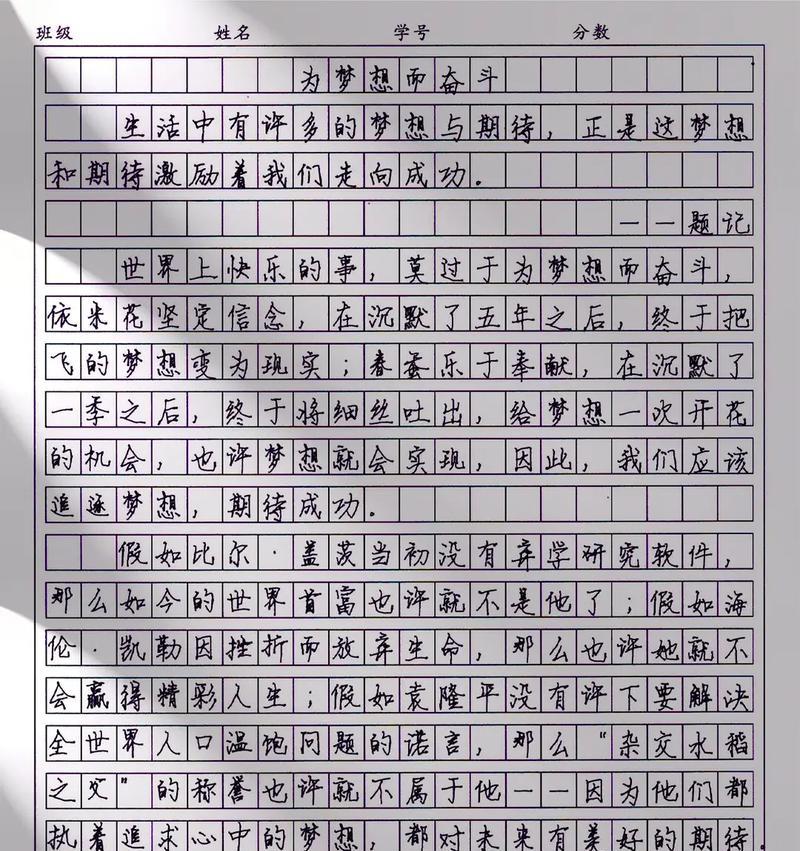 班级 姓名 学号 分数
为梦想而奋斗
生活中有许多的梦想与期待，正是这梦想
和期待激励着我们走向成功。
——题记
世界上快乐的事，莫过于为梦想而奋斗，
依米花坚定信念，在沉默了五年之后，终于把
飞的梦想变为现实；春蚕乐于奉献，在沉默了
一季之后，终于将细丝吐出，给梦想一次开花
的机会，也许梦想就会实现，因此，我们应该
追逐梦想，期待成功。
假如比尔·盖茨当初没有弃学研究软件，
那么如今的世界首富也许就不是他了；假如海
伦·凯勒因挫折而放弃生命，那么也许她就不
会赢得精彩人生；假如袁隆平没有许下要解决
全世界人口温饱问题的诺言，那么“杂交水稻
之父”的称誉也许就不属于他——因为他们都
执着追求心中的梦想，都对未来有美好的期待。